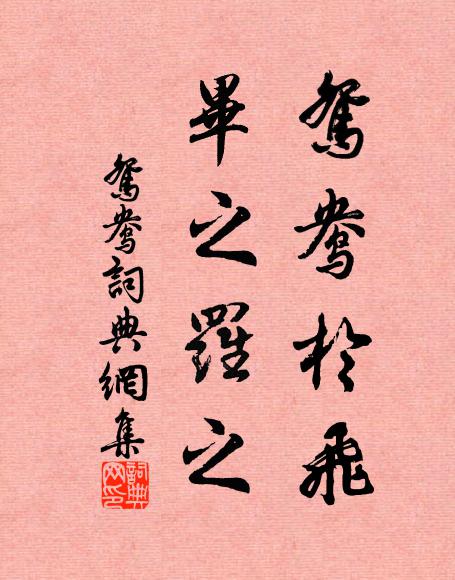 鴛鴦於飛
畢之羅之
鴛鴦詞典網集
詞典網印